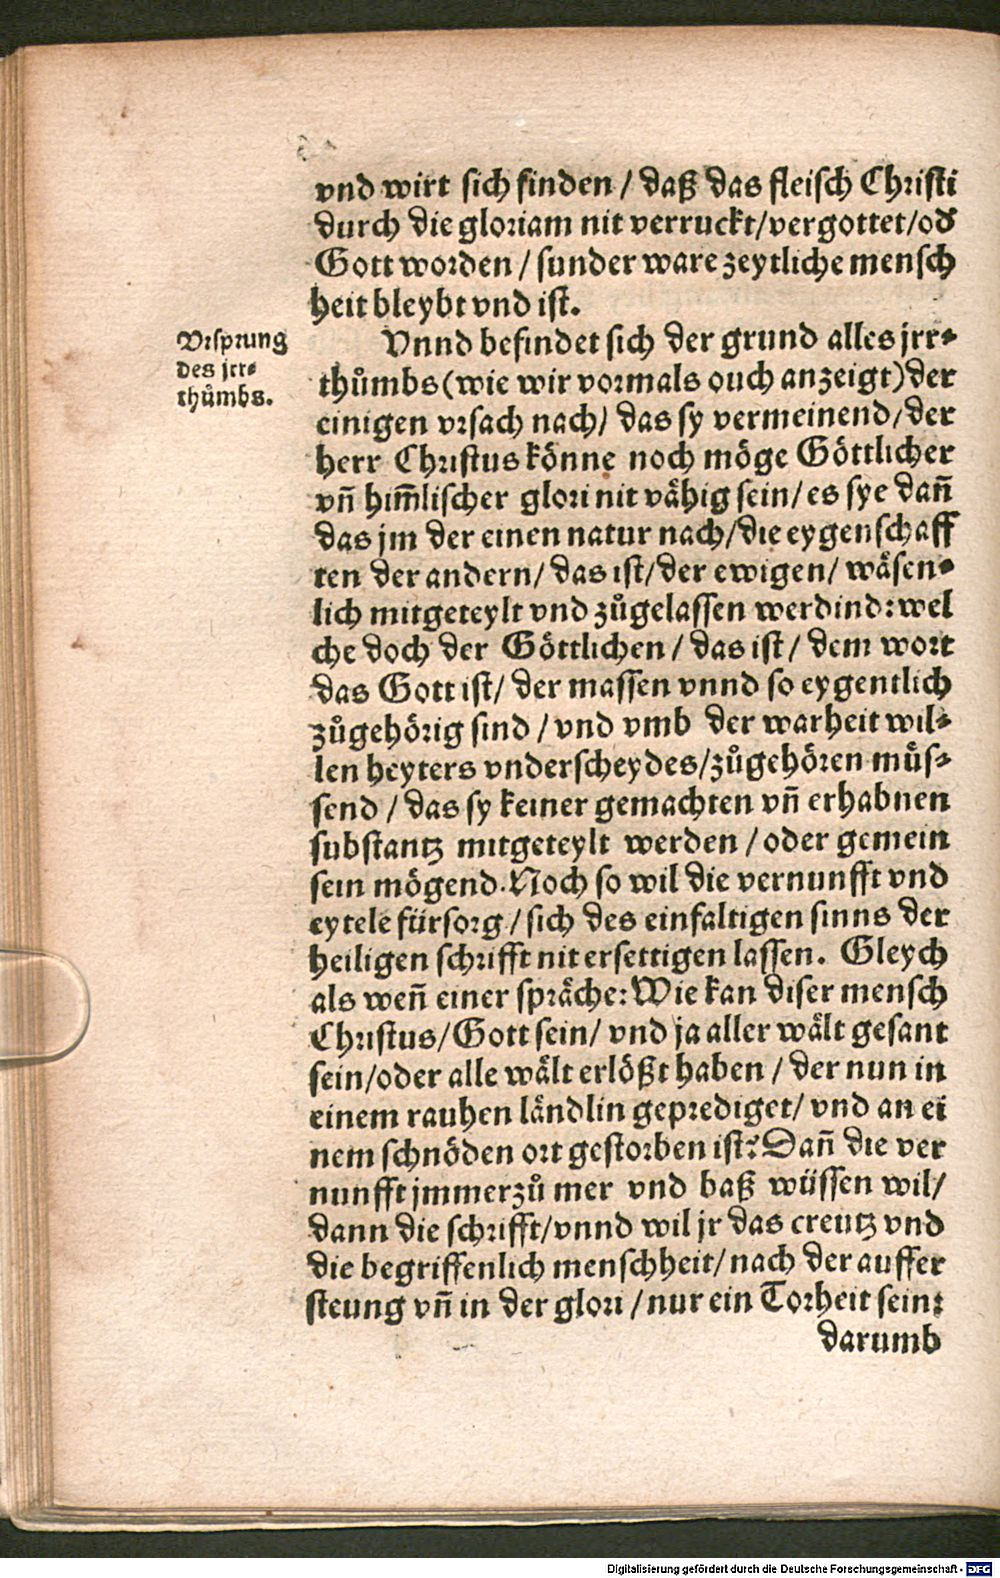 vnd wirt sich finden / daß das fleisch Christi
durch die gloriam nit verruckt/vergottet/od
Gott worden / sunder ware zeytliche mensch
heit bleybt vnd ist.
Vrsprung
des jrr⸗
thůmbs.
Vnnd befindet sich der grund alles jrr⸗
thůmbs (wie wir vormals ouch anzeigt) der
einigen vrsach nach/ das sy vermeinend/ der
herr Christus könne noch möge Göttlicher
vñ him̃lischer glori nit vähig sein/ es sye dañ
das jm der einen natur nach/die eygenschaff
ten der andern/ das ist/ der ewigen/ wäsen⸗
lich mitgeteylt vnd zůgelassen werdind: wel
che doch der Göttlichen / das ist / dem wort
das Gott ist/ der massen vnnd so eygentlich
zůgehörig sind / vnd vmb der warheit wil⸗
len heyters vnderscheydes/zůgehören müs⸗
send / das sy keiner gemachten vñ erhabnen
substantz mitgeteylt werden / oder gemein
sein mögend. Noch so wil die vernunfft vnd
eytele fürsorg / sich des einfaltigen sinns der
heiligen schrifft nit ersettigen lassen. Gleych
als weñ einer spräche: Wie kan diser mensch
Christus/ Gott sein/ vnd ja aller wält gesant
sein/oder alle wält erlößt haben / der nun in
einem rauhen ländlin geprediget/ vnd an ei
nem schnöden ort gestorben ist? Dañ die ver
nunfft jmmerzů mer vnd baß wüssen wil/
dann die schrifft/vnnd wil jr das creutz vnd
die begriffenlich menschheit/ nach der auffer
steung vñ in der glori / nur ein Torheit sein:
darumb
Digitalisierung gefördert durch die Deutsche Forschungsgemeinschaft - DFG